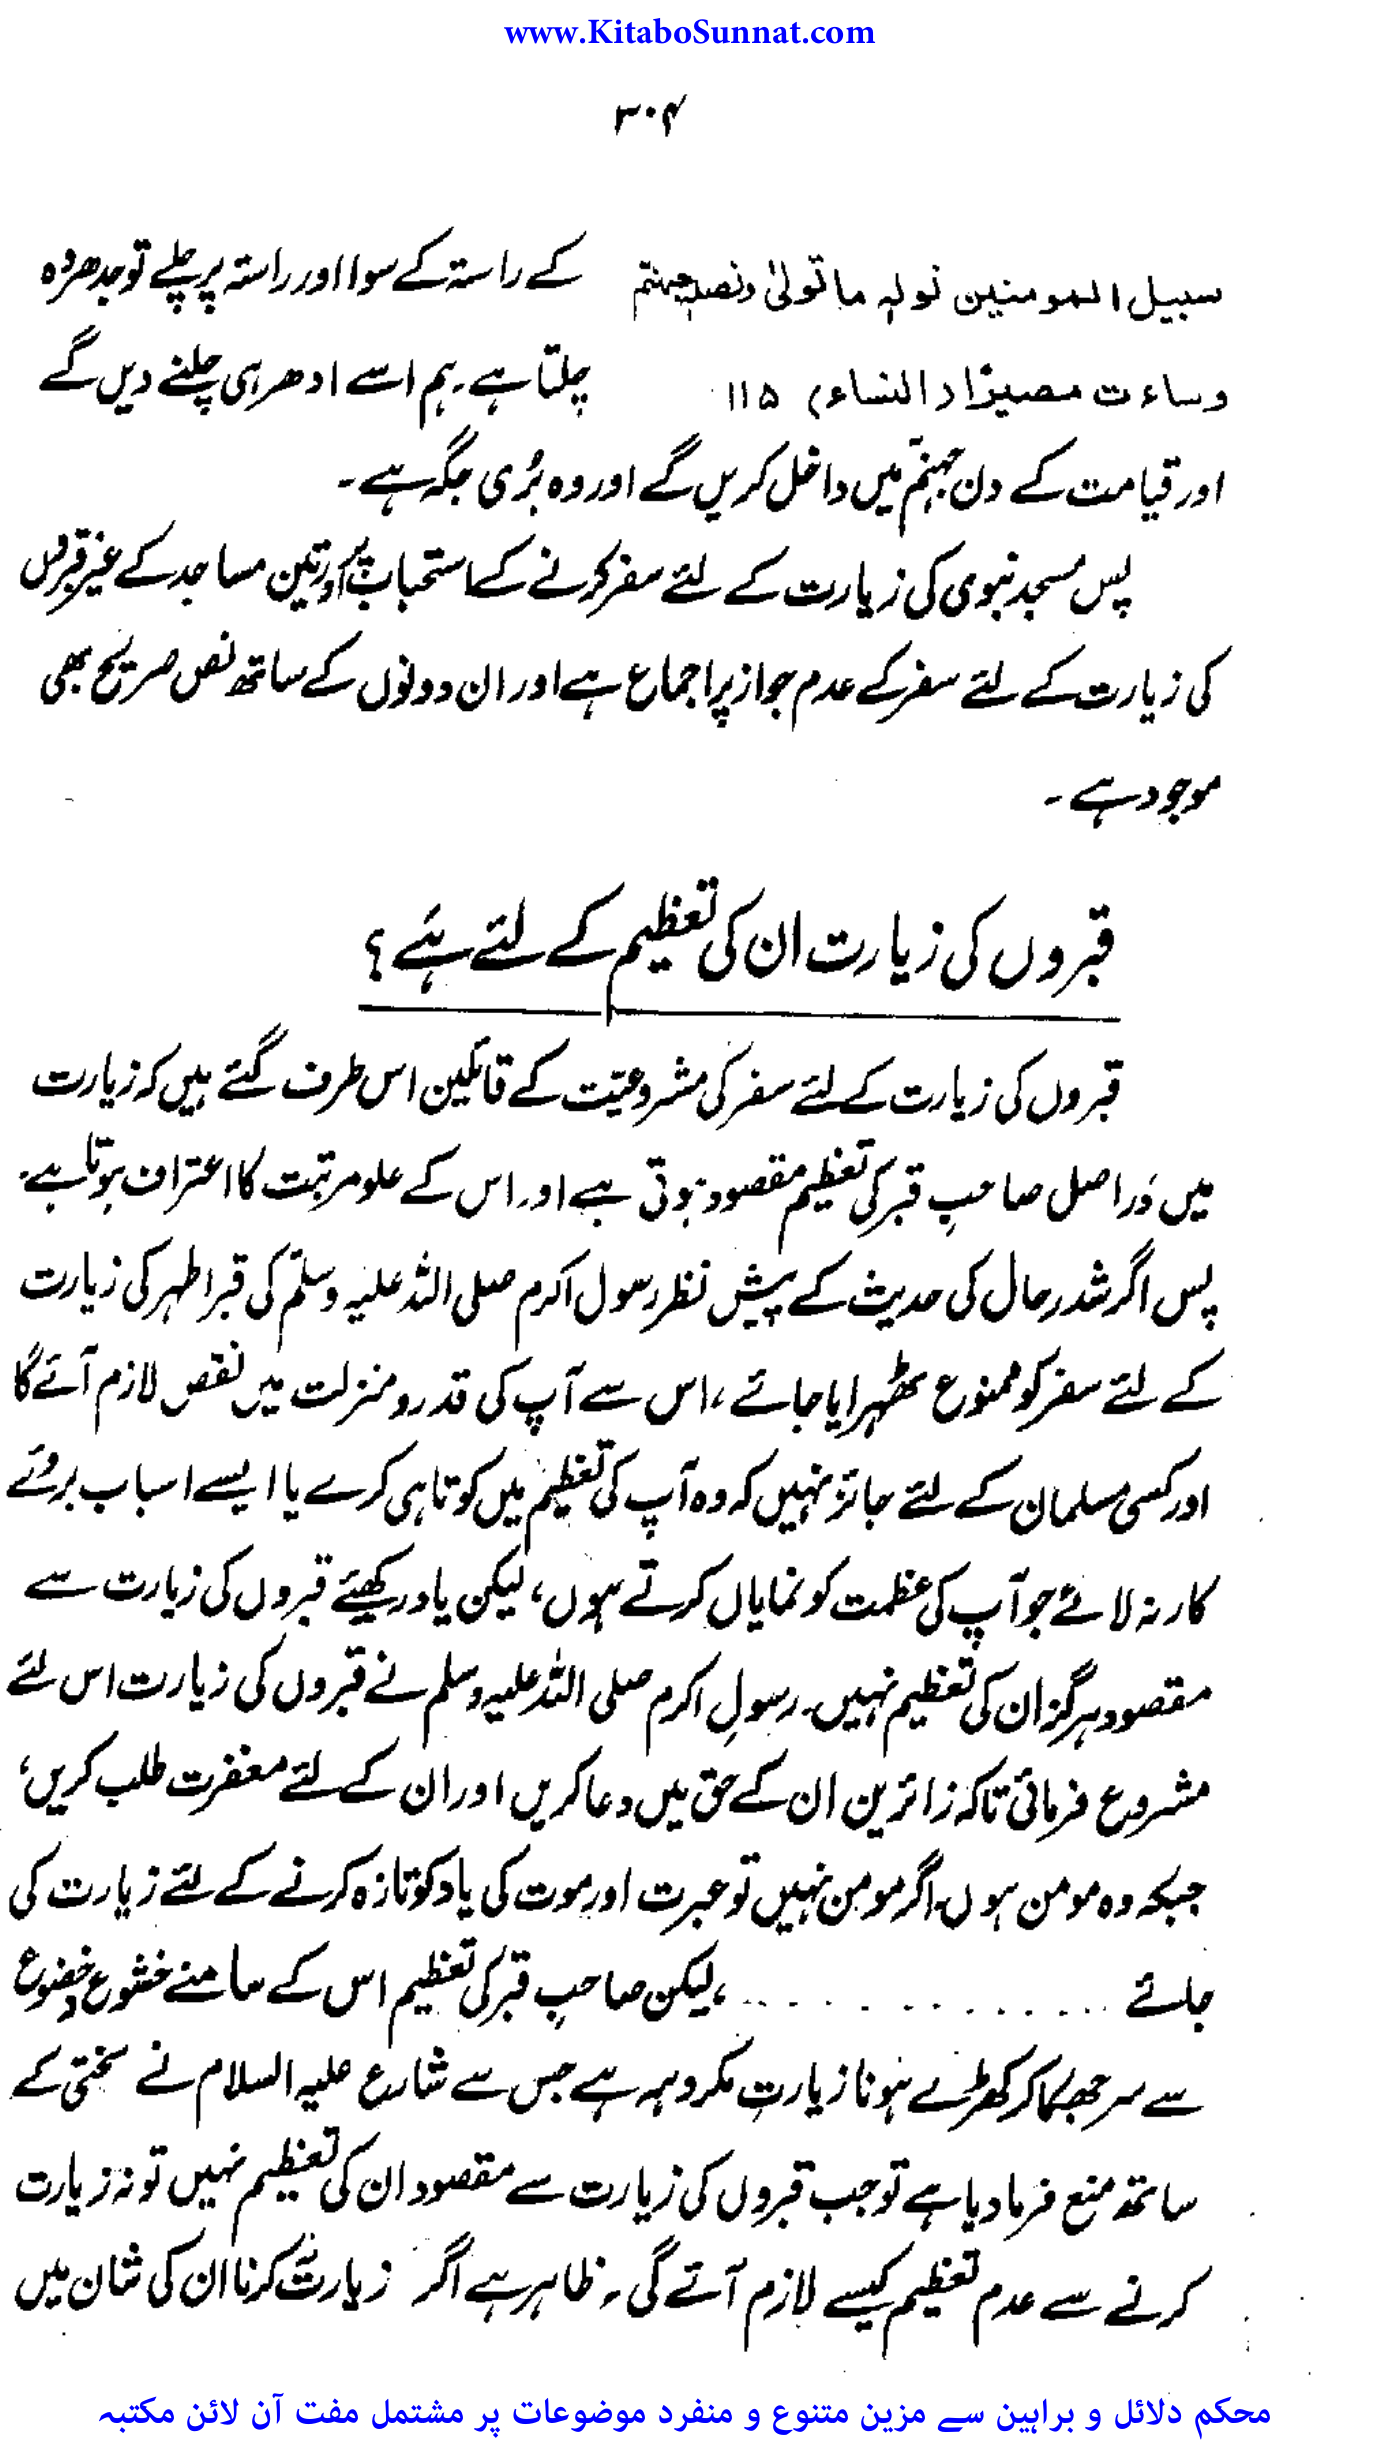 www.KitaboSunnat.com
۳۰۴
سبیل المومنین نولہ ماتولیٰ ونصلہ جہنم
وساءت مصیرًا (النساء) ۱۱۵
کے راستہ کے سوا اور راستہ پر چلے تو جدھر وہ
چلتا ہے۔ ہم اسے ادھر ہی چلنے دیں گے
اور قیامت کے دن جہنم میں داخل کریں گے اور وہ بُری جگہ ہے۔
پس مسجد نبوی کی زیارت کے لئے سفر کرنے کے استحباب پر اور تین مساجد کے غیر قبروں
کی زیارت کے لئے سفر کے عدم جواز پر اجماع ہے اور ان دونوں کے ساتھ نص صریح بھی
موجود ہے۔
قبروں کی زیارت ان کی تعظیم کے لئے ہے؟
قبروں کی زیارت کے لئے سفر کی مشروعیّت کے قائلین اس طرف گئے ہیں کہ زیارت
میں دَراصل صاحبِ قبر کی تعظیم مقصود ہوتی ہے اور اس کے علو مرتبت کا اعتراف ہوتا ہے۔
پس اگر شد رحال کی حدیث کے پیش نظر رسول اکرم صلی اللہ علیہ وسلّم کی قبر اطہر کی زیارت
کے لئے سفر کو ممنوع ٹھہرایا جائے، اس سے آپ کی قدر و منزلت میں نقص لازم آئے گا
اور کسی مسلمان کے لئے جائز نہیں کہ وہ آپ کی تعظیم میں کوتاہی کرے یا ایسے اسباب بروئے
کار نہ لائے جو آپ کی عظمت کو نمایاں کرتے ہوں، لیکن یاد رکھیئے قبروں کی زیارت سے
مقصود ہرگز ان کی تعظیم نہیں۔ رسولِ اکرم صلی اللہ علیہ وسلم نے قبروں کی زیارت اس لئے
مشروع فرمائی تاکہ زائرین ان کے حق میں دعا کریں اور ان کے لئے مغفرت طلب کریں،
جبکہ وہ مومن ہوں۔ اگر مومن نہیں تو عبرت اور موت کی یاد کو تازہ کرنے کے لئے زیارت کی
جائے . . . . . . . . . . . . . ، لیکن صاحبِ قبر کی تعظیم اس کے سامنے خشوع و خضوع
سے سر جھکا کر کھڑے ہونا زیارتِ مکروہہ ہے جس سے شارع علیہ السلام نے سختی کے
ساتھ منع فرما دیا ہے تو جب قبروں کی زیارت سے مقصود ان کی تعظیم نہیں تو نہ زیارت
کرنے سے عدم تعظیم کیسے لازم آئے گی۔ ظاہر ہے اگر زیارت کرنا ان کی شان میں
محکم دلائل و براہین سے مزین متنوع و منفرد موضوعات پر مشتمل مفت آن لائن مکتبہ